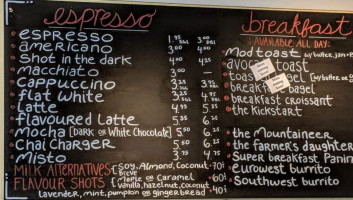 espresso
ESPRESSO 1.95 3.00
americano 3.00 4.00
Shot in the dark 4.00 4.95
macchiato 3.00 —
Cappuccino 3.25 3.75
flat White
Latte 4.95 5.35
flavoured Latte 5.35 6.25
Mocha [DARK OR White Chocolate] 5.50 6.25
Chai Charger 5.50 6.25
Misto 3.75 4.75
MILK ALTERNATIVES Soy, Almond, Coconut .70¢
Breve
FLAVOUR SHOTS Maple or Caramel .60¢
Vanilla, hazelnut, coconut .40¢
lavender, mint, pumpkin or gingerbread
breakfast
AVAILABLE ALL DAY:
Mod toast w/butter, jam
avoc toast
toas
breakf bagel
breakfast croissant
the Kickstart
the Mountaineer
the farmer's daughter
Super breakfast Panini
eurowest burrito
Southwest burrito